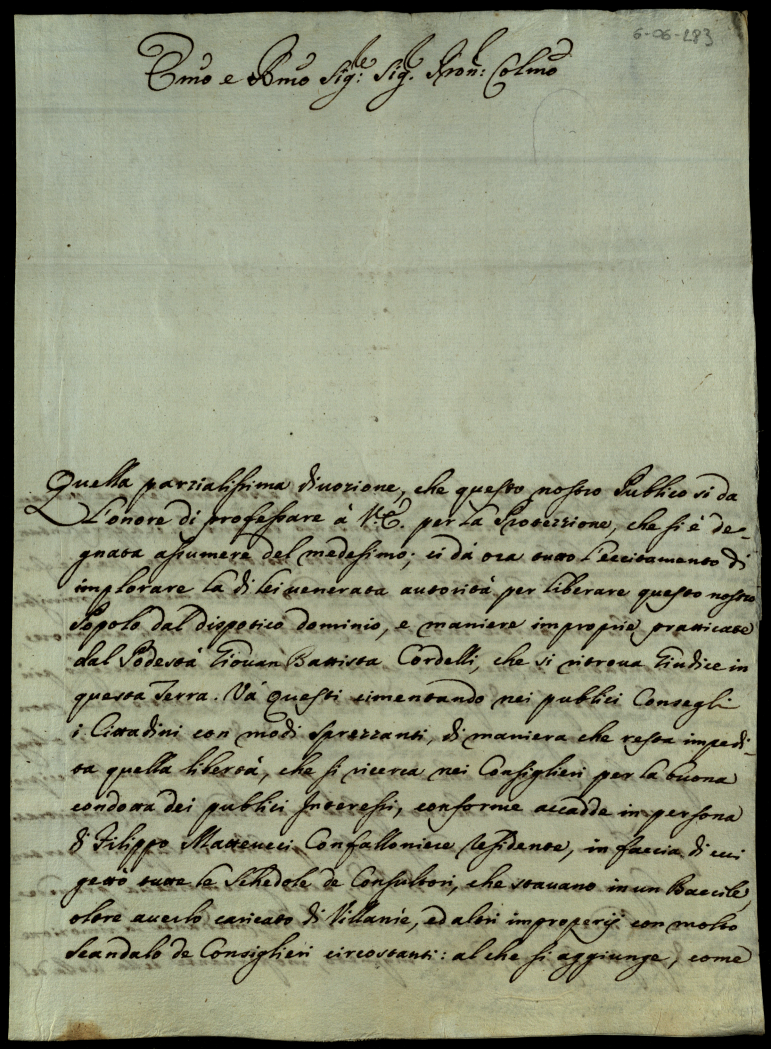 6-06-183
Emo e Rmo Sig.re Sig.r Pron: Colmo
Quella parzialissima divozione, che questo nostro Publico si da
L'onore di professare à V. E. per la Protezzione, che si è de-
gnata assumere del medesimo; ci dà ora tutto l'eccitamento di
implorare la di lei venerata autorità per liberare questo nostro
Popolo dal dispotico dominio, e maniere improprie pratticate
dal Podestà Giovan Battista Cordelli, che si ritrova Giudice in
questa Terra. Và questi cimentando nei publici Consegli
i Cittadini con modi sprezzanti, di maniera che resta impedi-
ta quella libertà, che si ricerca nei Consiglieri per la buona
condotta dei publici Interessi, conforme accadde in persona
di Filippo Matteucci Confalloniere residente, in faccia di cui
gettò tutte le Schedole de Consultori, che stavano in un Baccile,
oltre averlo caricato di Villanie, ed altri improperij con molto
scandalo de Consiglieri circostanti: al che si aggiunge, come